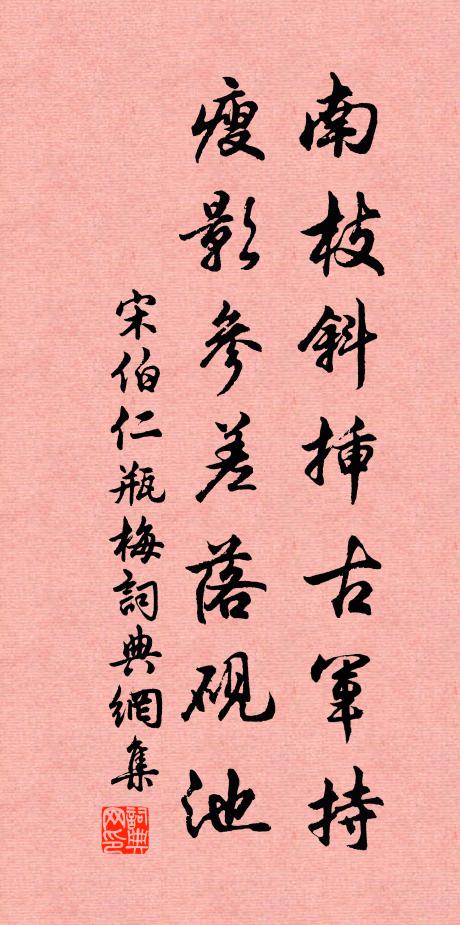 南枝斜插古軍持
瘦影參差落硯池
宋伯仁瓶梅詞典網集
詞典网印